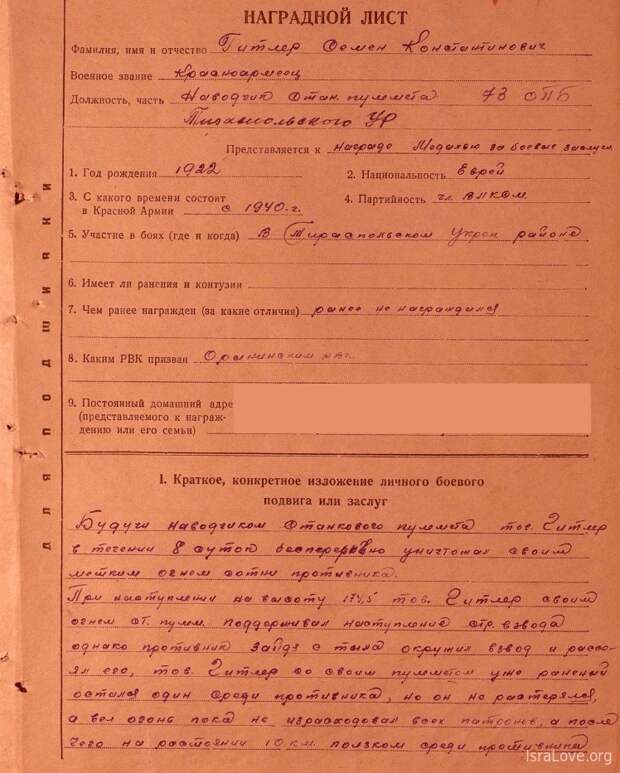 НАГРАДНОЙ ЛИСТ
Фамилия, имя и отчество Гитлер Семен Константинович
Военное звание Красноармеец
Должность, часть Наводчик Стан. пулмета 73 ОПБ
Тираспольского УР
Представляется к награде Медалью за боевые заслуги
1. Год рождения 1922 2. Национальность Еврей
3. С какого времени состоит
в Красной Армии с 1940 г. 4. Партийность чл ВЛКСМ
5. Участие в боях (где и когда) В Тираспольском Укреп районе
6. Имеет ли ранения и контузии
7. Чем ранее награжден (за какие отличия) ранее не награждался
8. Каким РВК призван Оринински
9. Постоянный домашний адре
(представляемого к награж-
дению или его семьи)
для подшивки
I. Краткое, конкретное изложение личного боевого
подвига или заслуг
Будучи наводчиком Станкового пулмета тов. Гитлер
в течении 8 суток бесперерывно уничтожал своим
метким огнем сотни противника.
При наступлении на высоту 174,5 тов. Гитлер своим
огнем ст. пулм. поддерживал наступление стр. взвода
однако противник зайдя с тыла окружил взвод и рассе-
ял его, тов. Гитлер со своим пулметом уже раненый
остался один среди противника, но он не растерялся,
а вел огонь пока не израсходовал всех патронов, а после
чего на растоянии 10 км. ползком среди противника
IsraLove.org